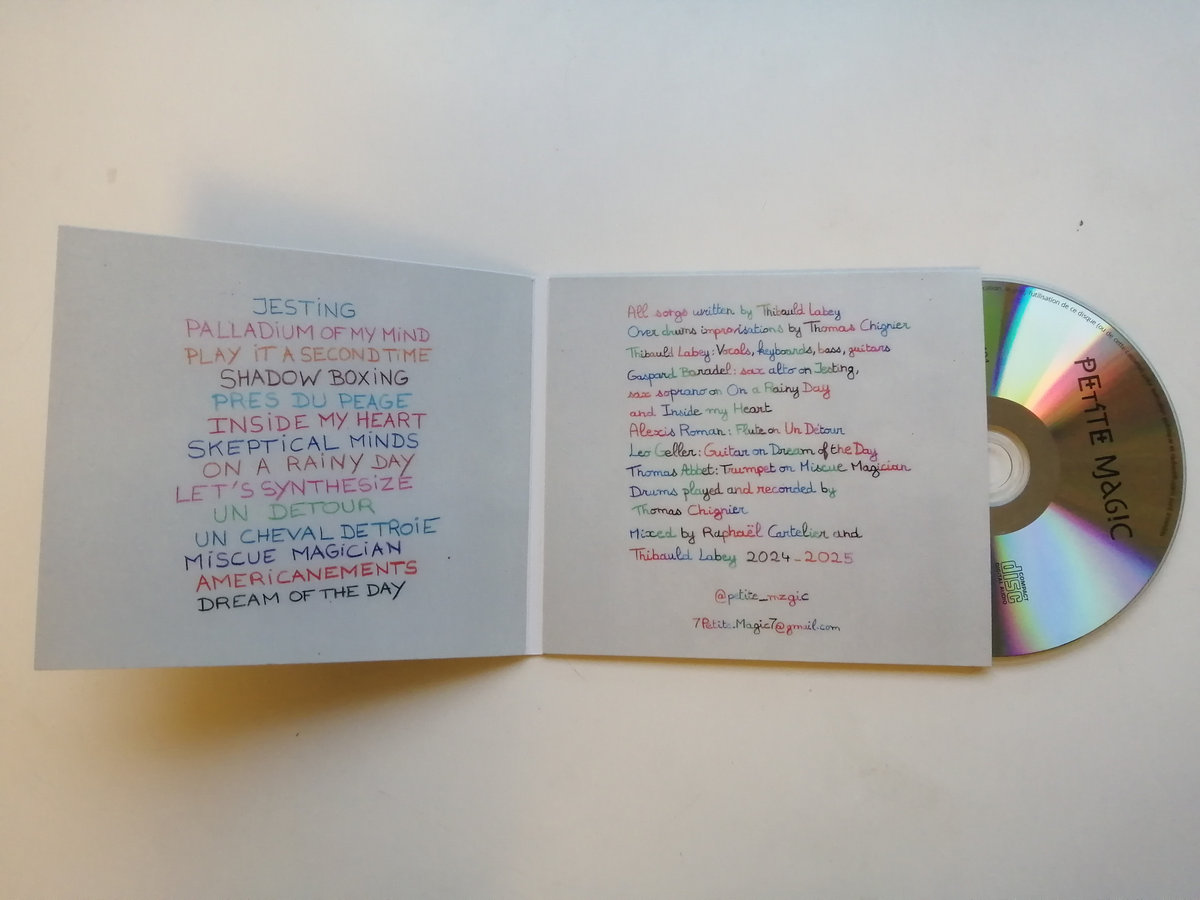 JESTING
PALLADIUM OF MY MIND
PLAY IT A SECOND TIME
SHADOW BOXING
PRES DU PEAGE
INSIDE MY HEART
SKEPTICAL MINDS
ON A RAINY DAY
LET'S SYNTHESIZE
UN DETOUR
UN CHEVAL DE TROIE
MISCUE MAGICIAN
AMERICANEMENTS
DREAM OF THE DAY
All songs written by Thibauld Labey
Over drums improvisations by Thomas Chignier
Thibauld Labey: Vocals, keyboards, bass, guitars
Gaspard Baradel: sax alto on Jesting,
sax soprano on On a Rainy Day
and Inside my Heart
Alexis Roman: Flute on Un Détour
Leo Geller: Guitar on Dream of the Day
Thomas Abbet: Trumpet on Miscue Magician
Drums played and recorded by
Thomas Chignier
Mixed by Raphaël Cartelier and
Thibauld Labey 2024-2025
@petite_mzgic
7Petite.Magic7@gmail.com
PETITE MAGIC
COMPACT
disc
DIGITAL AUDIO
l'utilisation de ce disque (ou de